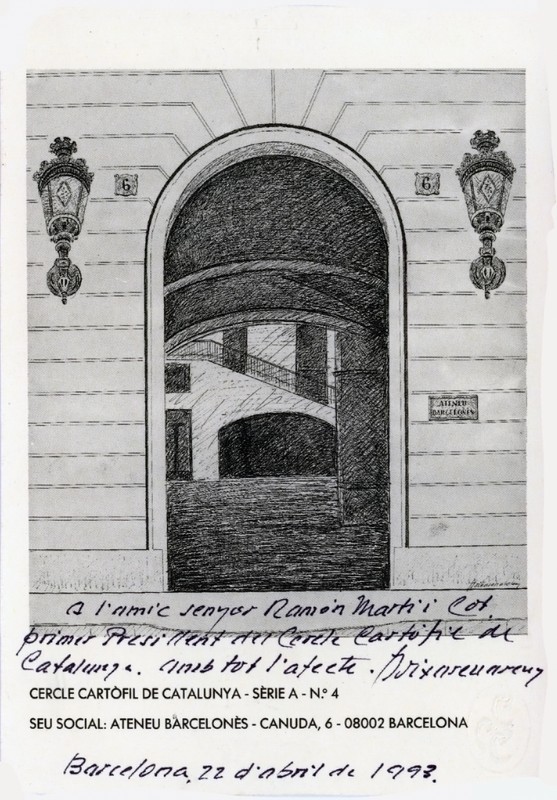 6
6
ATENEU
BARCELONÈS
A l'amic senyor Ramón Martí i Cot
primer President del Cercle Cartòfil de
Catalunya. amb tot l'afecte.
CERCLE CARTÒFIL DE CATALUNYA - SÈRIE A - N.º 4
SEU SOCIAL: ATENEU BARCELONÈS - CANUDA, 6 - 08002 BARCELONA
Barcelona, 22 d'abril de 1993.